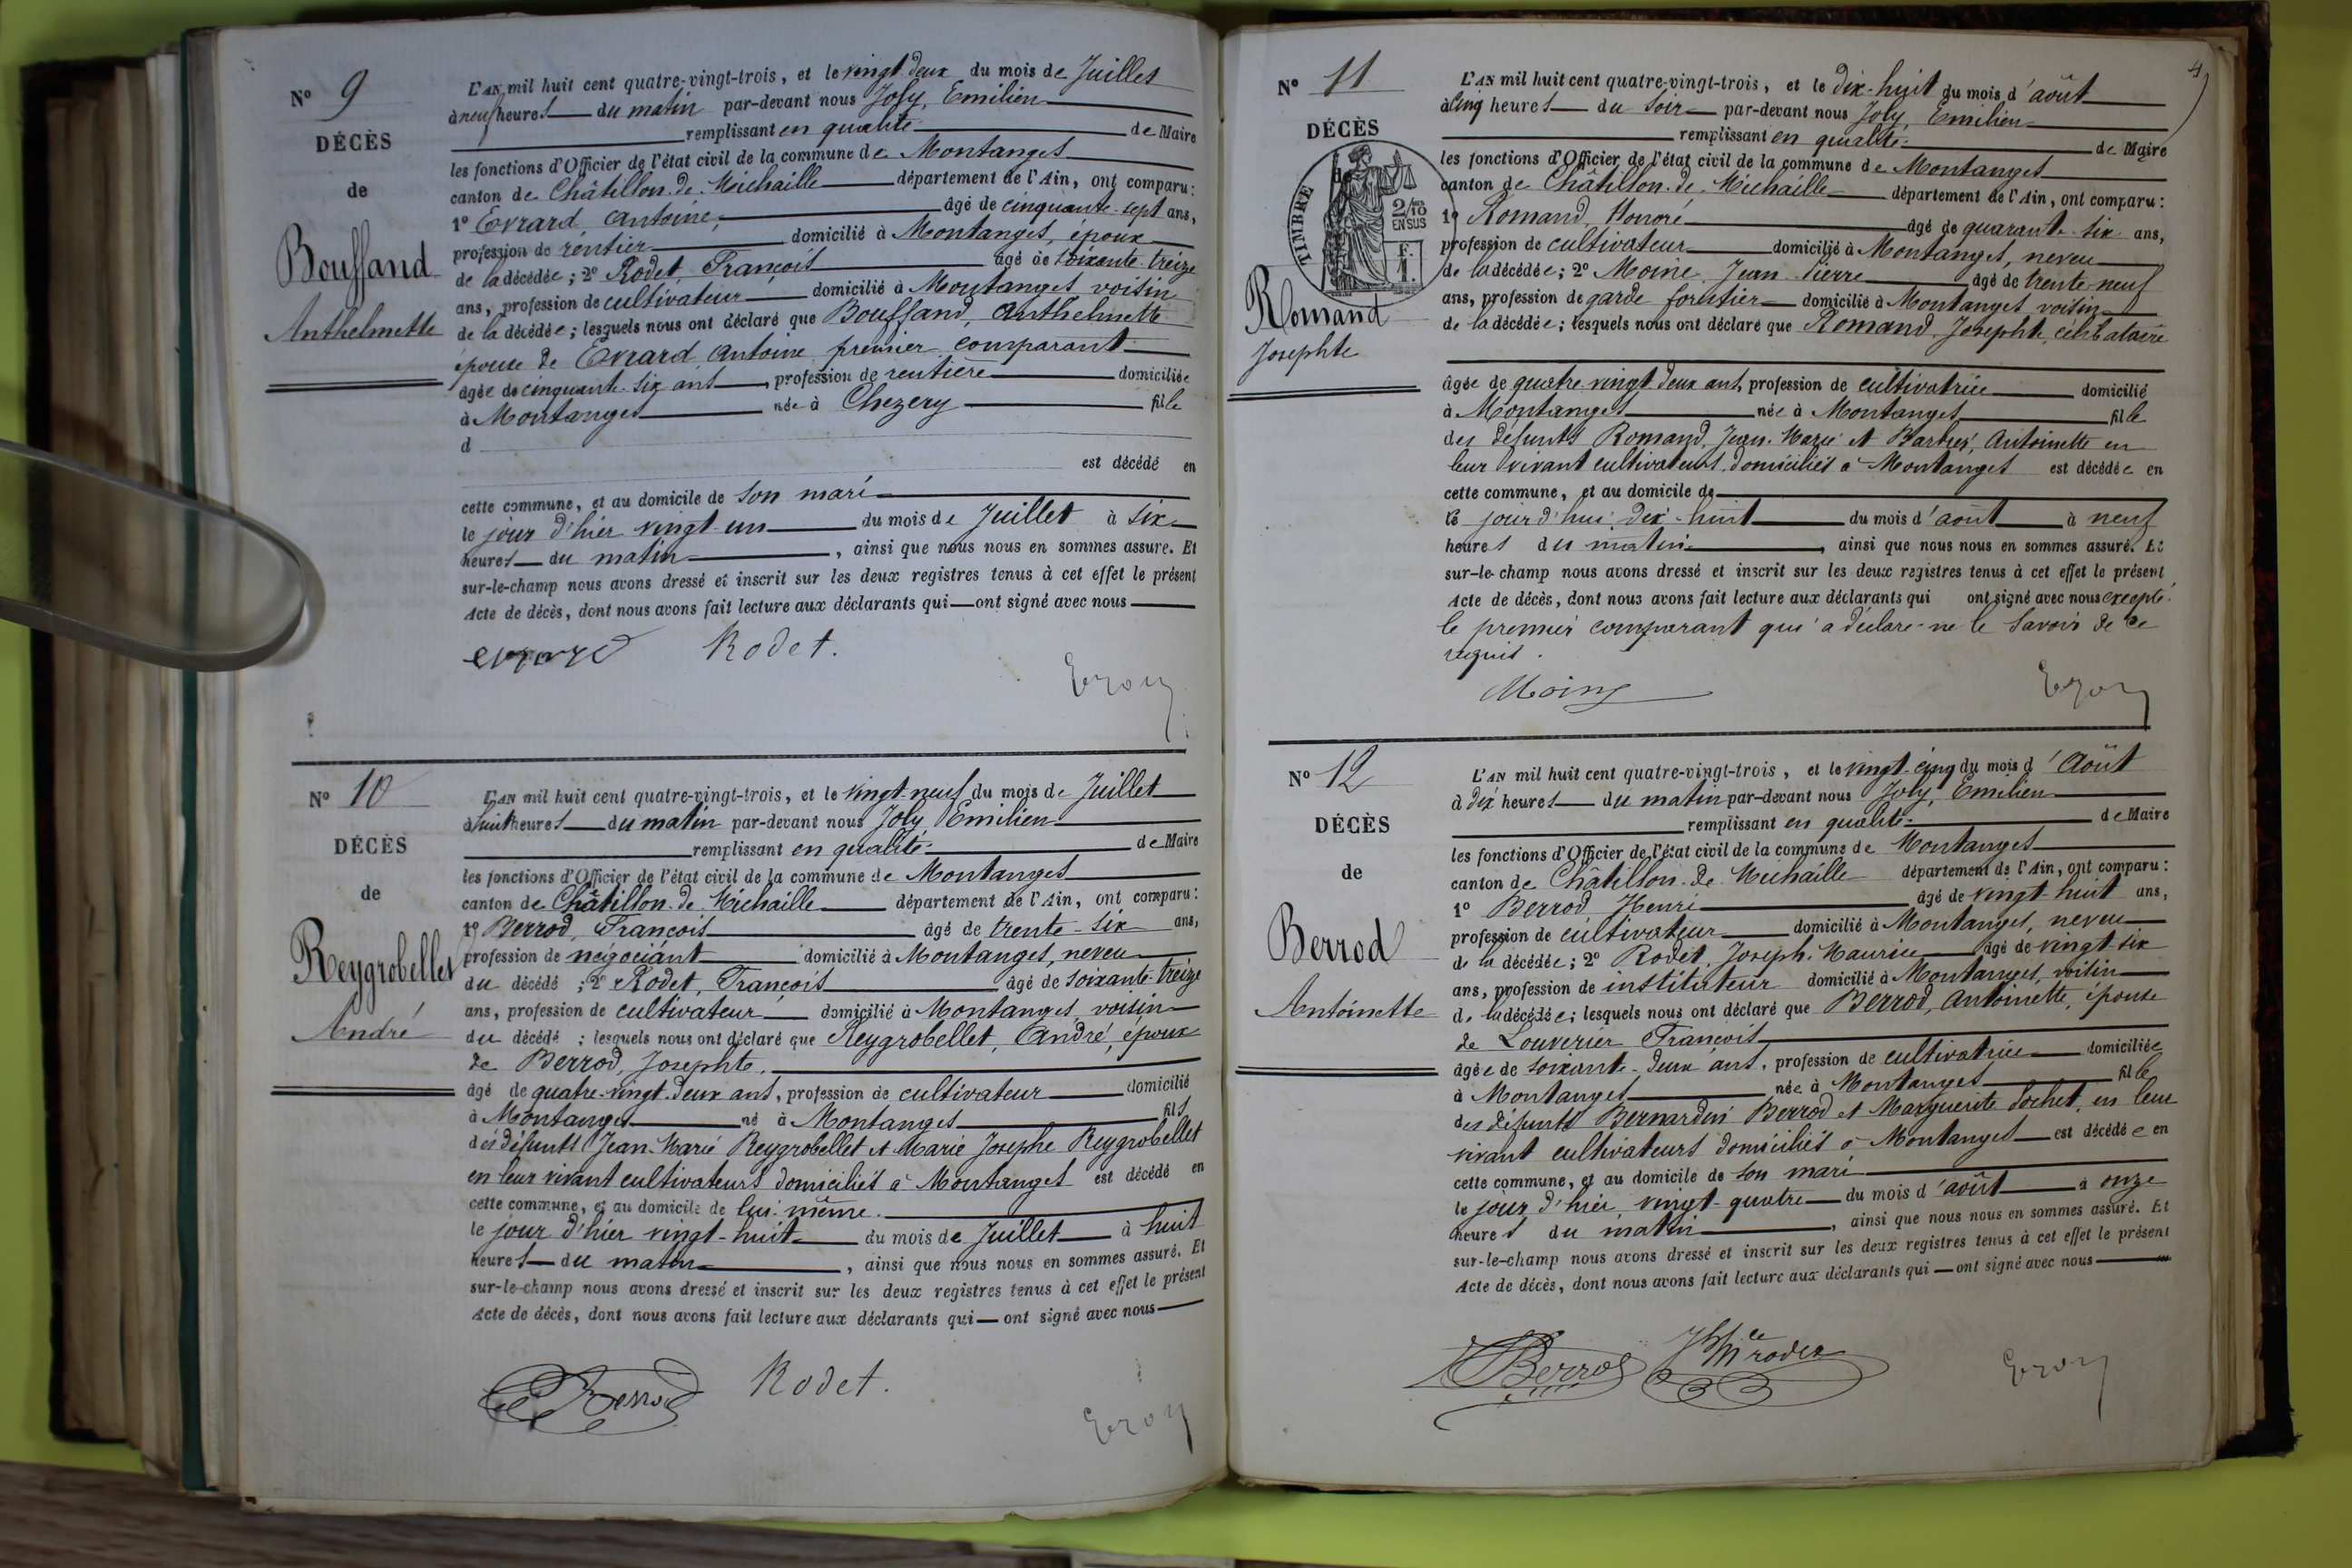 N° 9
DÉCÈS
de
Bouffand
Anthelmette
L'AN mil huit cent quatre-vingt-trois, et le vingt-deux du mois de Juillet
à neuf heures du matin par-devant nous Joly, Emilien
remplissant en qualité de Maire
les fonctions d'Officier de l'état civil de la commune de Montanges
canton de Châtillon-de-Michaille département de l'Ain, ont comparu :
1° Evrard, Antoine, âgé de cinquante-sept ans,
profession de rentier domicilié à Montanges, époux
de la décédée ; 2° Rodet, François âgé de soixante-treize
ans, profession de cultivateur domicilié à Montanges voisin
de la décédée ; lesquels nous ont déclaré que Bouffand, Anthelmette
épouse de Evrard Antoine premier comparant
âgée de cinquante-six ans, profession de rentière domiciliée
à Montanges née à Chezery fille
d
est décédé en
cette commune, et au domicile de son mari
le jour d'hier vingt-un du mois de Juillet à six
heures du matin, ainsi que nous nous en sommes assuré. Et
sur-le-champ nous avons dressé et inscrit sur les deux registres tenus à cet effet le présent
Acte de décès, dont nous avons fait lecture aux déclarants qui ont signé avec nous
evrard Rodet.
N° 10
DÉCÈS
de
Reygrobellet
André
L'AN mil huit cent quatre-vingt-trois, et le vingt-neuf du mois de Juillet
à huit heures du matin par-devant nous Joly Emilien
remplissant en qualité de Maire
les fonctions d'Officier de l'état civil de la commune de Montanges
canton de Châtillon-de-Michaille département de l'Ain, ont comparu :
1° Berrod, François âgé de trente-six ans,
profession de négociant domicilié à Montanges, neveu
du décédé ; 2° Rodet, François âgé de soixante-treize
ans, profession de cultivateur domicilié à Montanges, voisin
du décédé ; lesquels nous ont déclaré que Reygrobellet, André, époux
de Berrod, Josephte,
âgé de quatre-vingt-deux ans, profession de cultivateur domicilié
à Montanges né à Montanges fils
des défunts Jean-Marie Reygrobellet et Marie Josephe Reygrobellet
en leur vivant cultivateurs domiciliés à Montanges est décédé en
cette commune, et au domicile de lui-même.
le jour d'hier vingt-huit du mois de Juillet à huit
heures du matin, ainsi que nous nous en sommes assuré. Et
sur-le-champ nous avons dressé et inscrit sur les deux registres tenus à cet effet le présent
Acte de décès, dont nous avons fait lecture aux déclarants qui ont signé avec nous
Berrod Rodet.
4
N° 11
DÉCÈS
de
TIMBRE
2/10 EN SUS
Romand
Josephte
L'AN mil huit cent quatre-vingt-trois, et le dix-huit du mois d'août
à cinq heures du soir par-devant nous Joly, Emilien
remplissant en qualité de Maire
les fonctions d'Officier de l'état civil de la commune de Montanges
canton de Châtillon-de-Michaille département de l'Ain, ont comparu :
1° Romand, Honoré âgé de quarante-six ans,
profession de cultivateur domicilié à Montanges, neveu
de la décédée ; 2° Moine, Jean-Pierre âgé de trente-neuf
ans, profession de garde forestier domicilié à Montanges voisin
de la décédée ; lesquels nous ont déclaré que Romand, Josephte, célibataire
âgée de quatre-vingt-deux ans, profession de cultivatrice domicilié
à Montanges née à Montanges fille
des défunts Romand, Jean-Marie et Antoinette en
leur vivant cultivateurs domiciliés à Montanges est décédée en
cette commune, et au domicile de
le jour d'hui dix-huit du mois d'août à neuf
heures du matin, ainsi que nous nous en sommes assuré. Et
sur-le-champ nous avons dressé et inscrit sur les deux registres tenus à cet effet le présent
Acte de décès, dont nous avons fait lecture aux déclarants qui ont signé avec nous excepté
le premier comparant qui a déclaré ne le savoir de ce
requis.
Moine
N° 12
DÉCÈS
de
Berrod
Antoinette
L'AN mil huit cent quatre-vingt-trois, et le vingt-cinq du mois d'Août
à dix heures du matin par-devant nous Joly, Emilien
remplissant en qualité de Maire
les fonctions d'Officier de l'état civil de la commune de Montanges
canton de Châtillon-de-Michaille département de l'Ain, ont comparu :
1° Berrod, Henri âgé de vingt-huit ans,
profession de cultivateur domicilié à Montanges, neveu
de la décédée ; 2° Rodet, Joseph-Maurice âgé de vingt-six
ans, profession de instituteur domicilié à Montanges, voisin
de la décédée ; lesquels nous ont déclaré que Berrod, Antoinette, épouse
de Louverier François
âgée de soixante-deux ans, profession de cultivatrice domiciliée
à Montanges née à Montanges fille
des défunts Bernardin Berrod et Marguerite Sochet, en leur
vivant cultivateurs domiciliés à Montanges est décédée en
cette commune, et au domicile de son mari
le jour d'hier vingt-quatre du mois d'août à onze
heures du matin, ainsi que nous nous en sommes assuré. Et
sur-le-champ nous avons dressé et inscrit sur les deux registres tenus à cet effet le présent
Acte de décès, dont nous avons fait lecture aux déclarants qui ont signé avec nous
Berrod